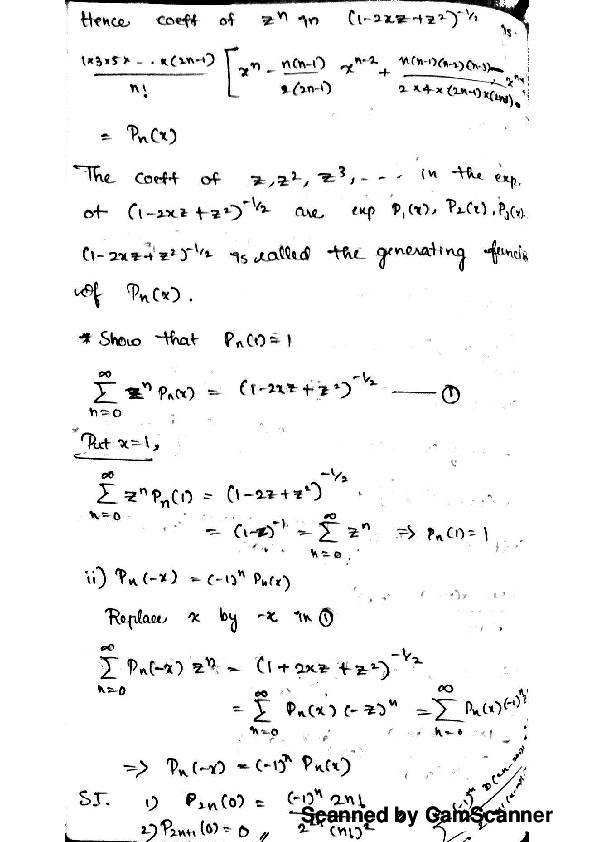 Hence coeff of zⁿ in (1-2xz+z²)^-1/2 is.
1x3x5x...x(2n-1)/n! [xⁿ - n(n-1)/2(2n-1) xⁿ⁻² + n(n-1)(n-2)(n-3)/2x4x(2n-1)x(2n-3)
= Pn(x)
The coeff of z, z², z³, - - - in the exp.
of (1-2xz+z²)^-1/2 are exp P₁(x), P₂(x), P₃(x).
(1-2xz+z²)^-1/2 is called the generating functio
of Pn(x).
* Show that Pn(1)=1
∞
Σ zⁿ Pn(x) = (1-2xz+z²)^-1/2 —— ①
n=0
Put x=1,
∞
Σ zⁿ Pn(1) = (1-2z+z²)^-1/2
n=0
= (1-z)⁻¹ = Σ_{n=0}^∞ zⁿ ⇒ Pn(1)=1
ii) Pn(-x) = (-1)ⁿ Pn(x)
Replace x by -x in ①
∞
Σ Pn(-x) zⁿ = (1+2xz+z²)^-1/2
n=0
= Σ_{n=0}^∞ Pn(x) (-z)ⁿ = Σ_{n=0}^∞ Pn(x) (-1)ⁿ
⇒ Pn(-x) = (-1)ⁿ Pn(x)
S.T. 1) P2n(0) = (-1)ⁿ 2n! / 2²ⁿ (n!)²
2) P2n+1 (0) = 0 //
Scanned by CamScanner